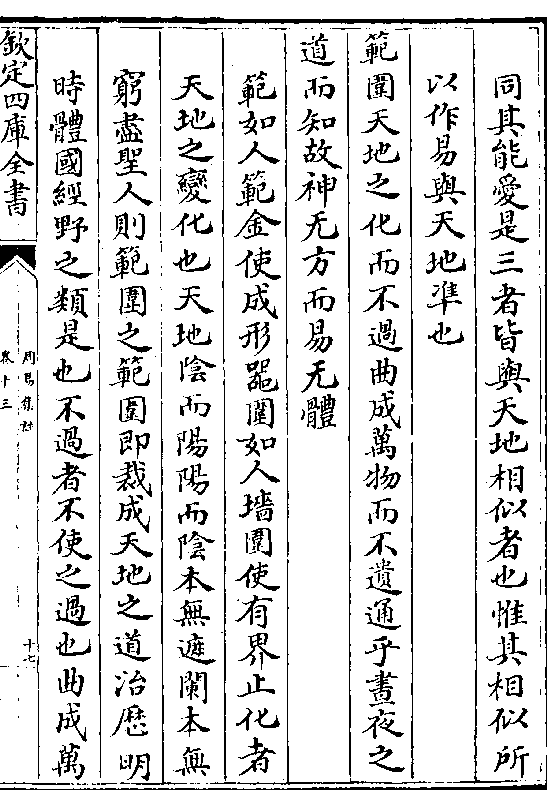 同其能愛是三者皆與天地相似者也惟其相似所
以作易與天地凖也
範圍天地之化而不過曲成萬物而不遺通乎晝夜之
道而知故神无方而易无體
範如人範金使成形器圍如人墻圍使有界止化者
天地之變化也天地陰而陽陽而陰本無遮闌本無
窮盡聖人則範圍之範圍即裁成天地之道治厯明
時體國經野之類是也不過者不使之過也曲成萬
欽定四庫全書
周易集註
卷十三
十七